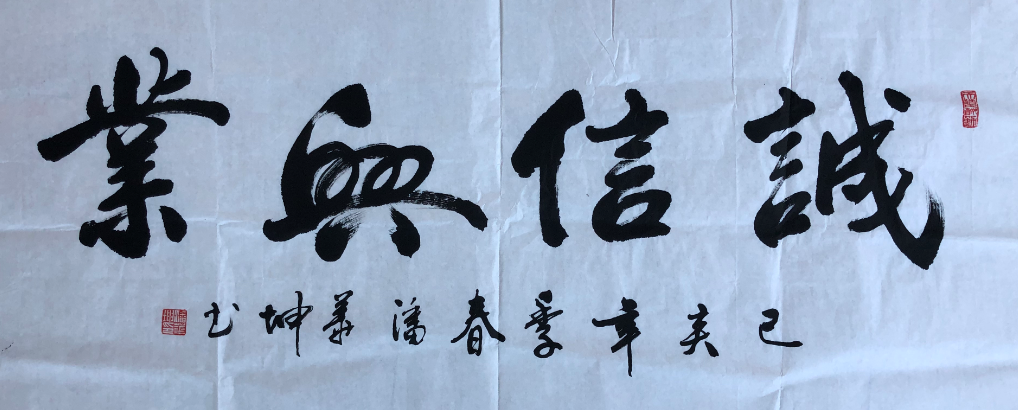 誠信興業
己亥年季春潘華坤书